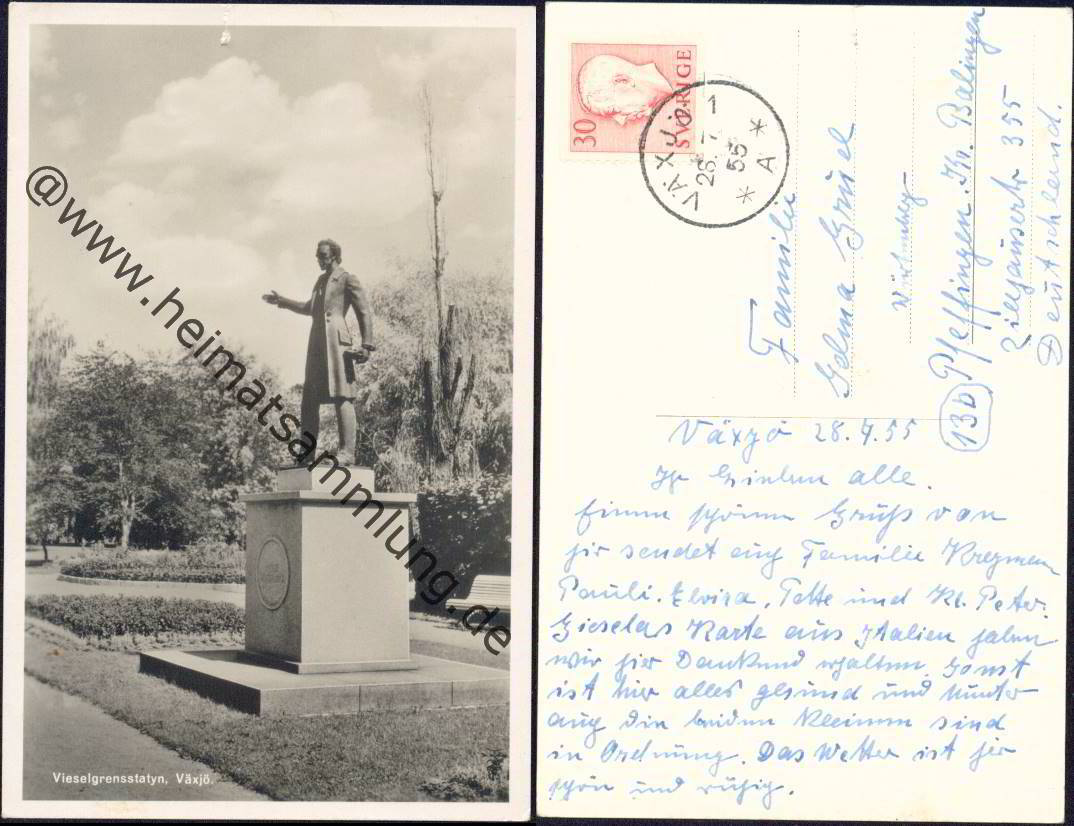 @www.heimatsammlung.de
Vieselgrensstatyn, Växjö.
30
SVERIGE
VÄXJÖ
28. 7. - 1
55
* A *
Familie
Grüel
Württembg
Pfeffingen. Kr. Balingen
355
Deutschland.
13b
Växjö 28.7.55
Ihr Lieben alle.
Einen schönen Gruß von
hir sendet euch Familie
Pauli. Elvira. Tette und Kl. Peter.
Gieselas Karte aus Italien haben
wir hier Dankend erhalten. Sonst
ist hier alles gesund und Munter
auch die beiden Kleinen sind
in Ordnung. Das Wetter ist hir
schön und ruhig.